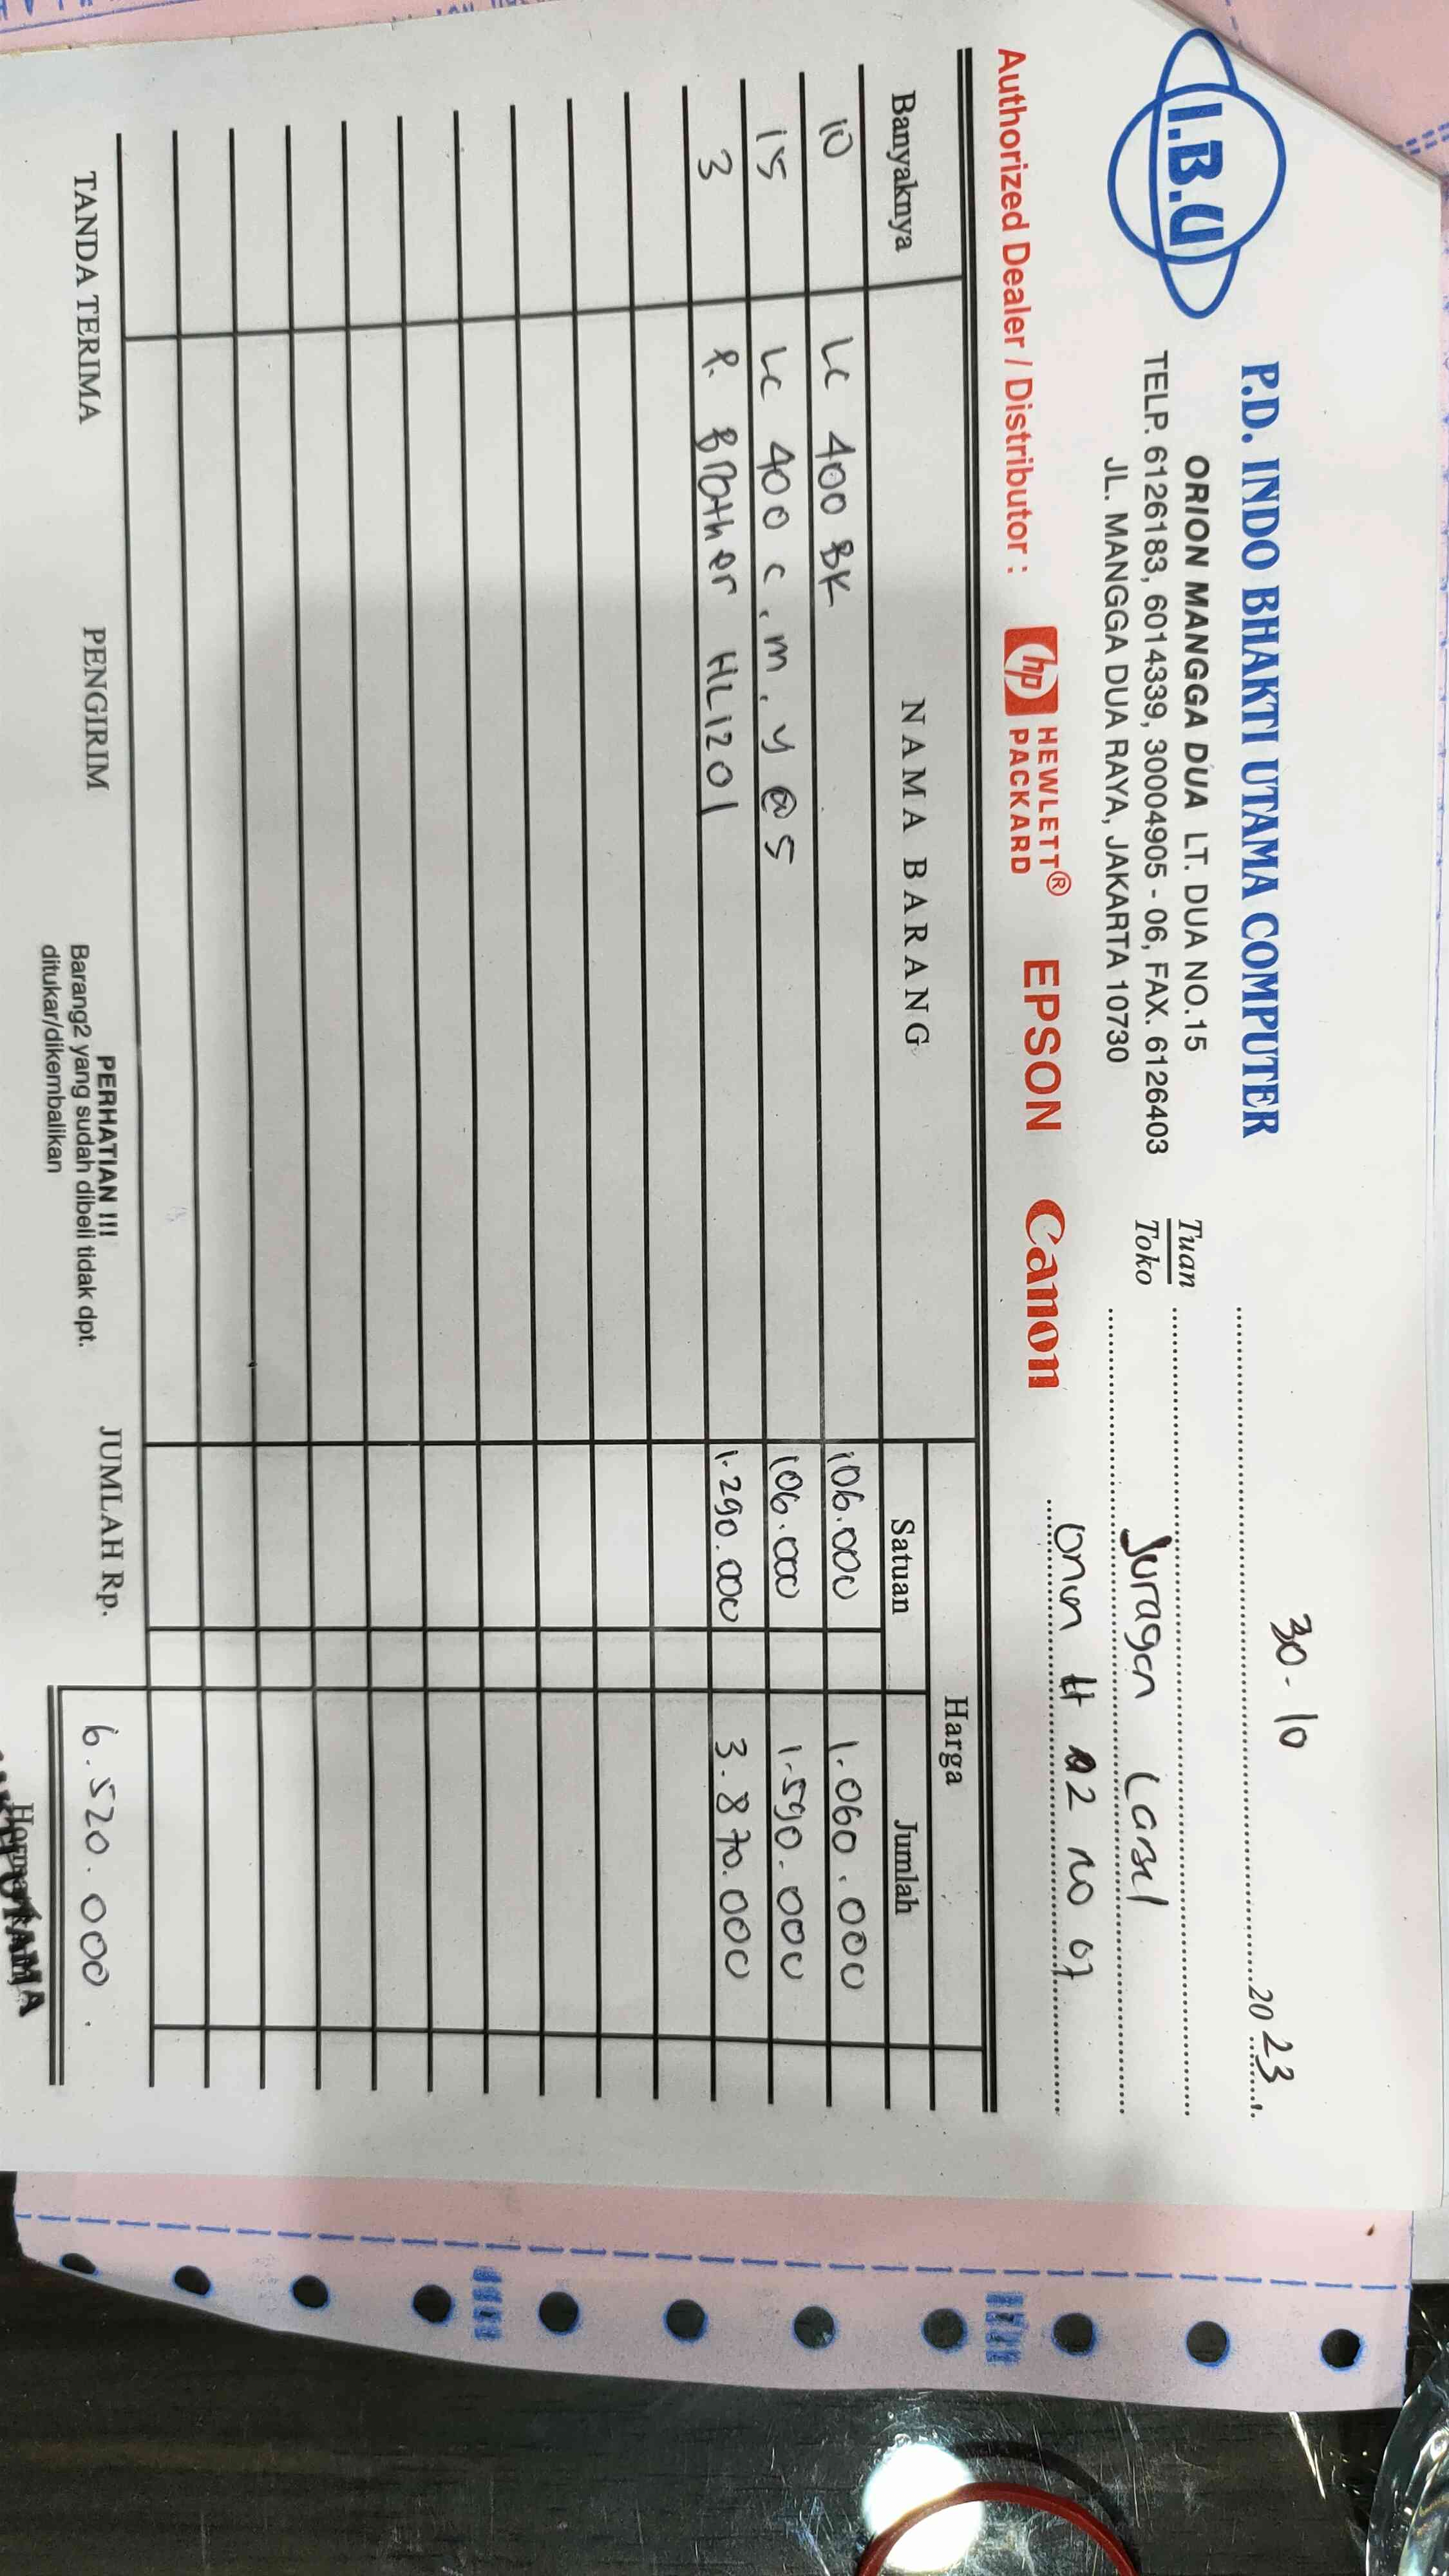 I.B.U
P.D. INDO BHAKTI UTAMA COMPUTER
ORION MANGGA DUA LT. DUA NO.15
TELP. 6126183, 6014339, 30004905 - 06, FAX. 6126403
JL. MANGGA DUA RAYA, JAKARTA 10730
30 - 10 2023
Tuan
Toko
Juragan
H 2 no 07
Authorized Dealer / Distributor : hp HEWLETT® PACKARD EPSON Canon
Banyaknya NAMA BARANG Harga
Satuan Jumlah
10 LC 400 BK 106.000 1.060.000
15 LC 400 C, M, Y @ 5 106.000 1.590.000
3 P. Brother HL1201 1.290.000 3.870.000
TANDA TERIMA PENGIRIM JUMLAH Rp. 6.520.000.
PERHATIAN !!!
Barang2 yang sudah dibeli tidak dpt.
ditukar/dikembalikan
UTAMA